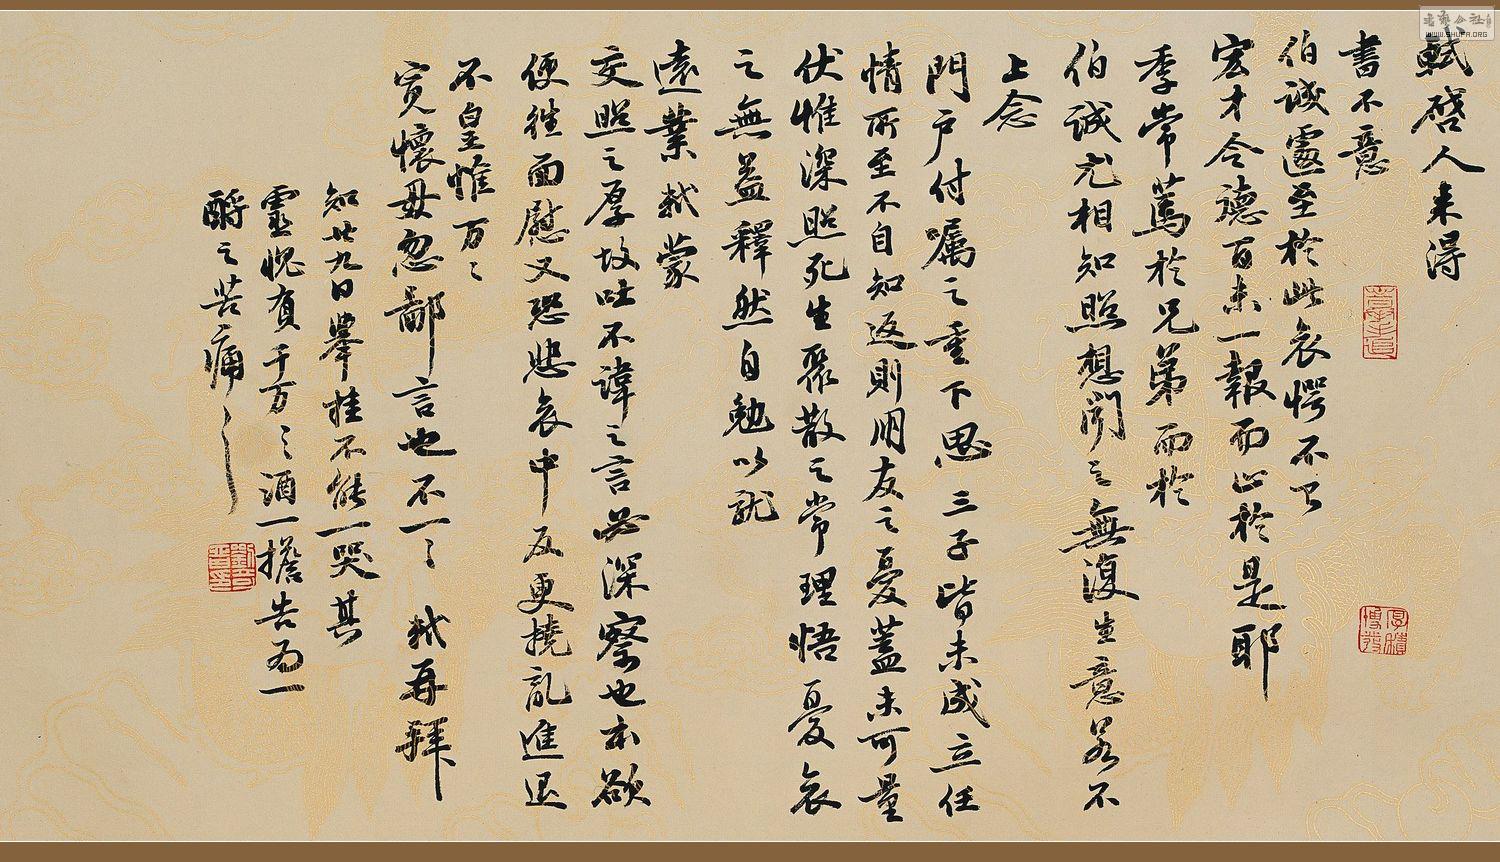 軾啓人來得
書不意
伯誠遽至於此哀愕不已
宏才令德百未一報而止於是耶
季常篤於兄弟而於
伯誠尤相知照想聞之無復生意若不
上念
門戶付囑之重下思三子皆未成立任
情所至不自知返則朋友之憂蓋未可量
伏惟深照死生聚散之常理悟憂哀
之無益釋然自勉以就
遠業軾蒙
交照之厚故吐不諱之言必深察也本欲
便往面慰又恐悲哀中反更撓亂進退
不皇惟万〻
寬懷毋忽鄙言也不一〻 軾再拜
知廿九日舉挂不能一哭其
靈愧負千万〻酒一擔告為一
酹之苦痛〻
厚積
博發
WWW.SHUFA.ORG